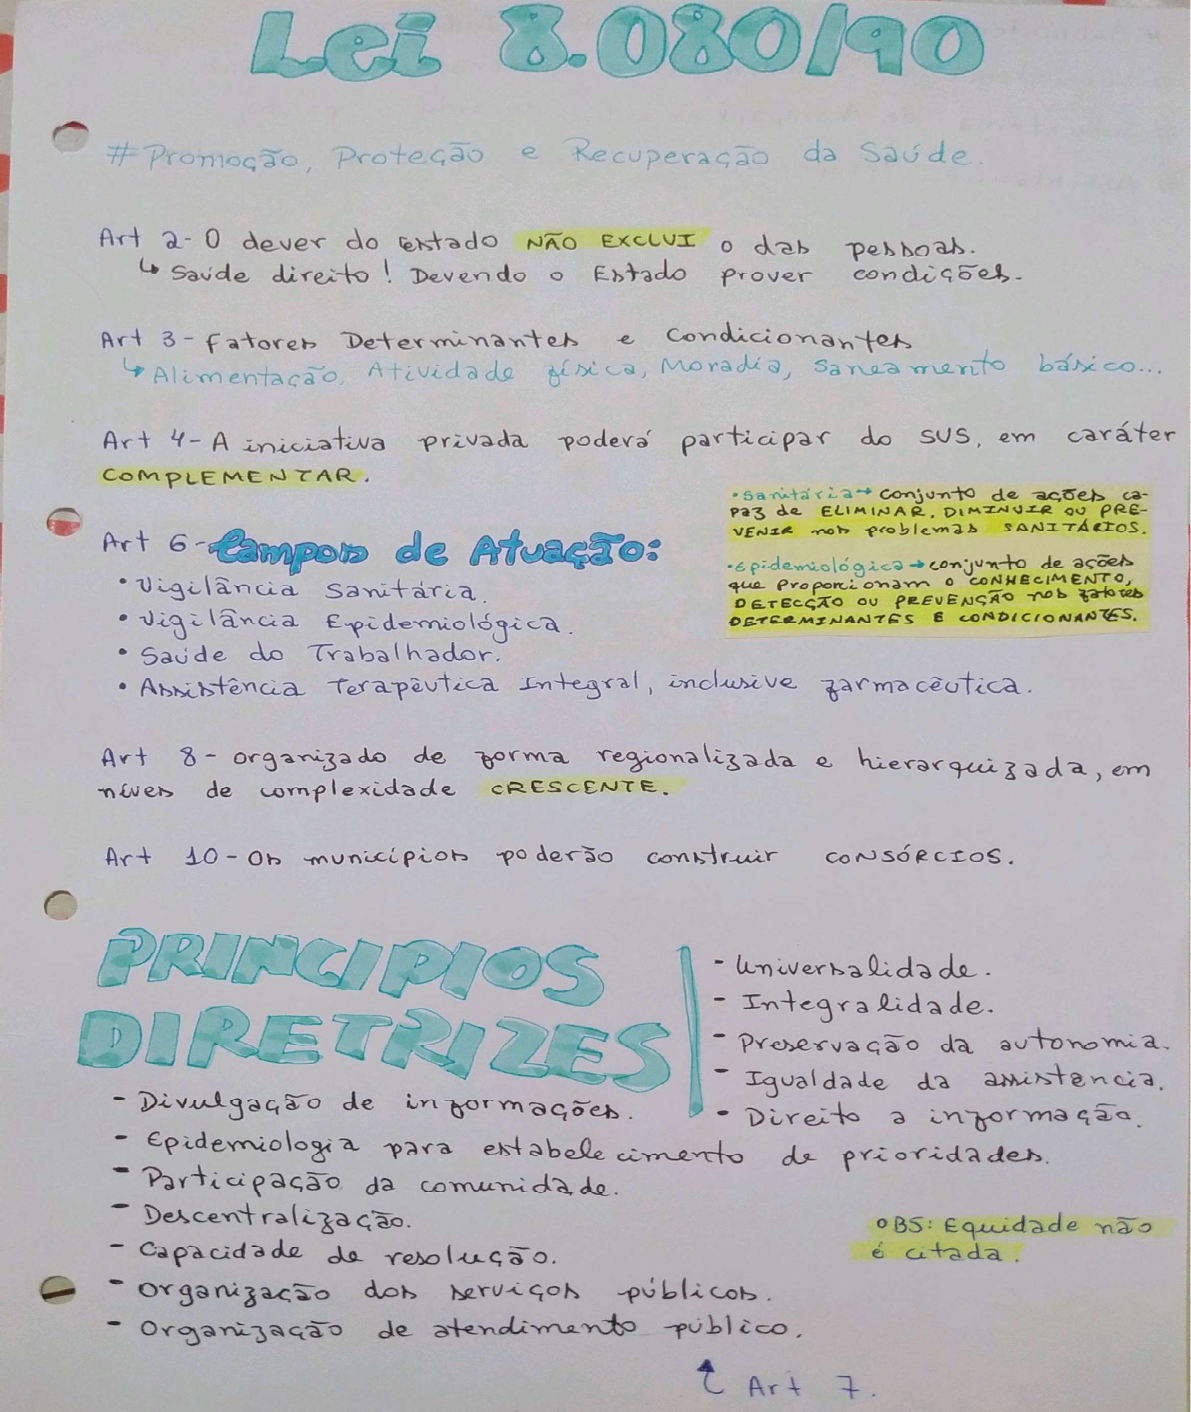 Lei 8.080/90
#Promoção, Proteção e Recuperação da Saúde.
Art 2- O dever do estado NÃO EXCLUI o das pessoas.
↳ Saúde direito! Devendo o Estado prover condições.
Art 3- Fatores Determinantes e Condicionantes
↳ Alimentação, Atividade física, Moradia, Saneamento básico...
Art 4- A iniciativa privada poderá participar do SUS, em caráter
COMPLEMENTAR.
Art 6- Campos de Atuação:
• Vigilância Sanitária.
• Vigilância Epidemiológica.
• Saúde do Trabalhador.
• Assistência Terapêutica Integral, inclusive farmacêutica.
• Sanitária → conjunto de ações ca-
paz de ELIMINAR, DIMINUIR OU PRE-
VENIR nos problemas SANITÁRIOS.
• Epidemiológica → conjunto de ações
que proporcionam o CONHECIMENTO,
DETECÇÃO OU PREVENÇÃO nos fatores
DETERMINANTES E CONDICIONANTES.
Art 8- organizado de forma regionalizada e hierarquizada, em
níves de complexidade CRESCENTE.
Art 10- Os municípios poderão construir CONSÓRCIOS.
PRINCIPIOS
DIRETRIZES
- Universalidade.
- Integralidade.
- Preservação da autonomia.
- Igualdade da assistência.
- Direito a informação.
- Divulgação de informações.
- Epidemiologia para estabelecimento de prioridades.
- Participação da comunidade.
- Descentralização.
- Capacidade de resolução.
- Organização dos serviços públicos.
- Organização de atendimento público.
OBS: Equidade não
é citada.
Art 7.